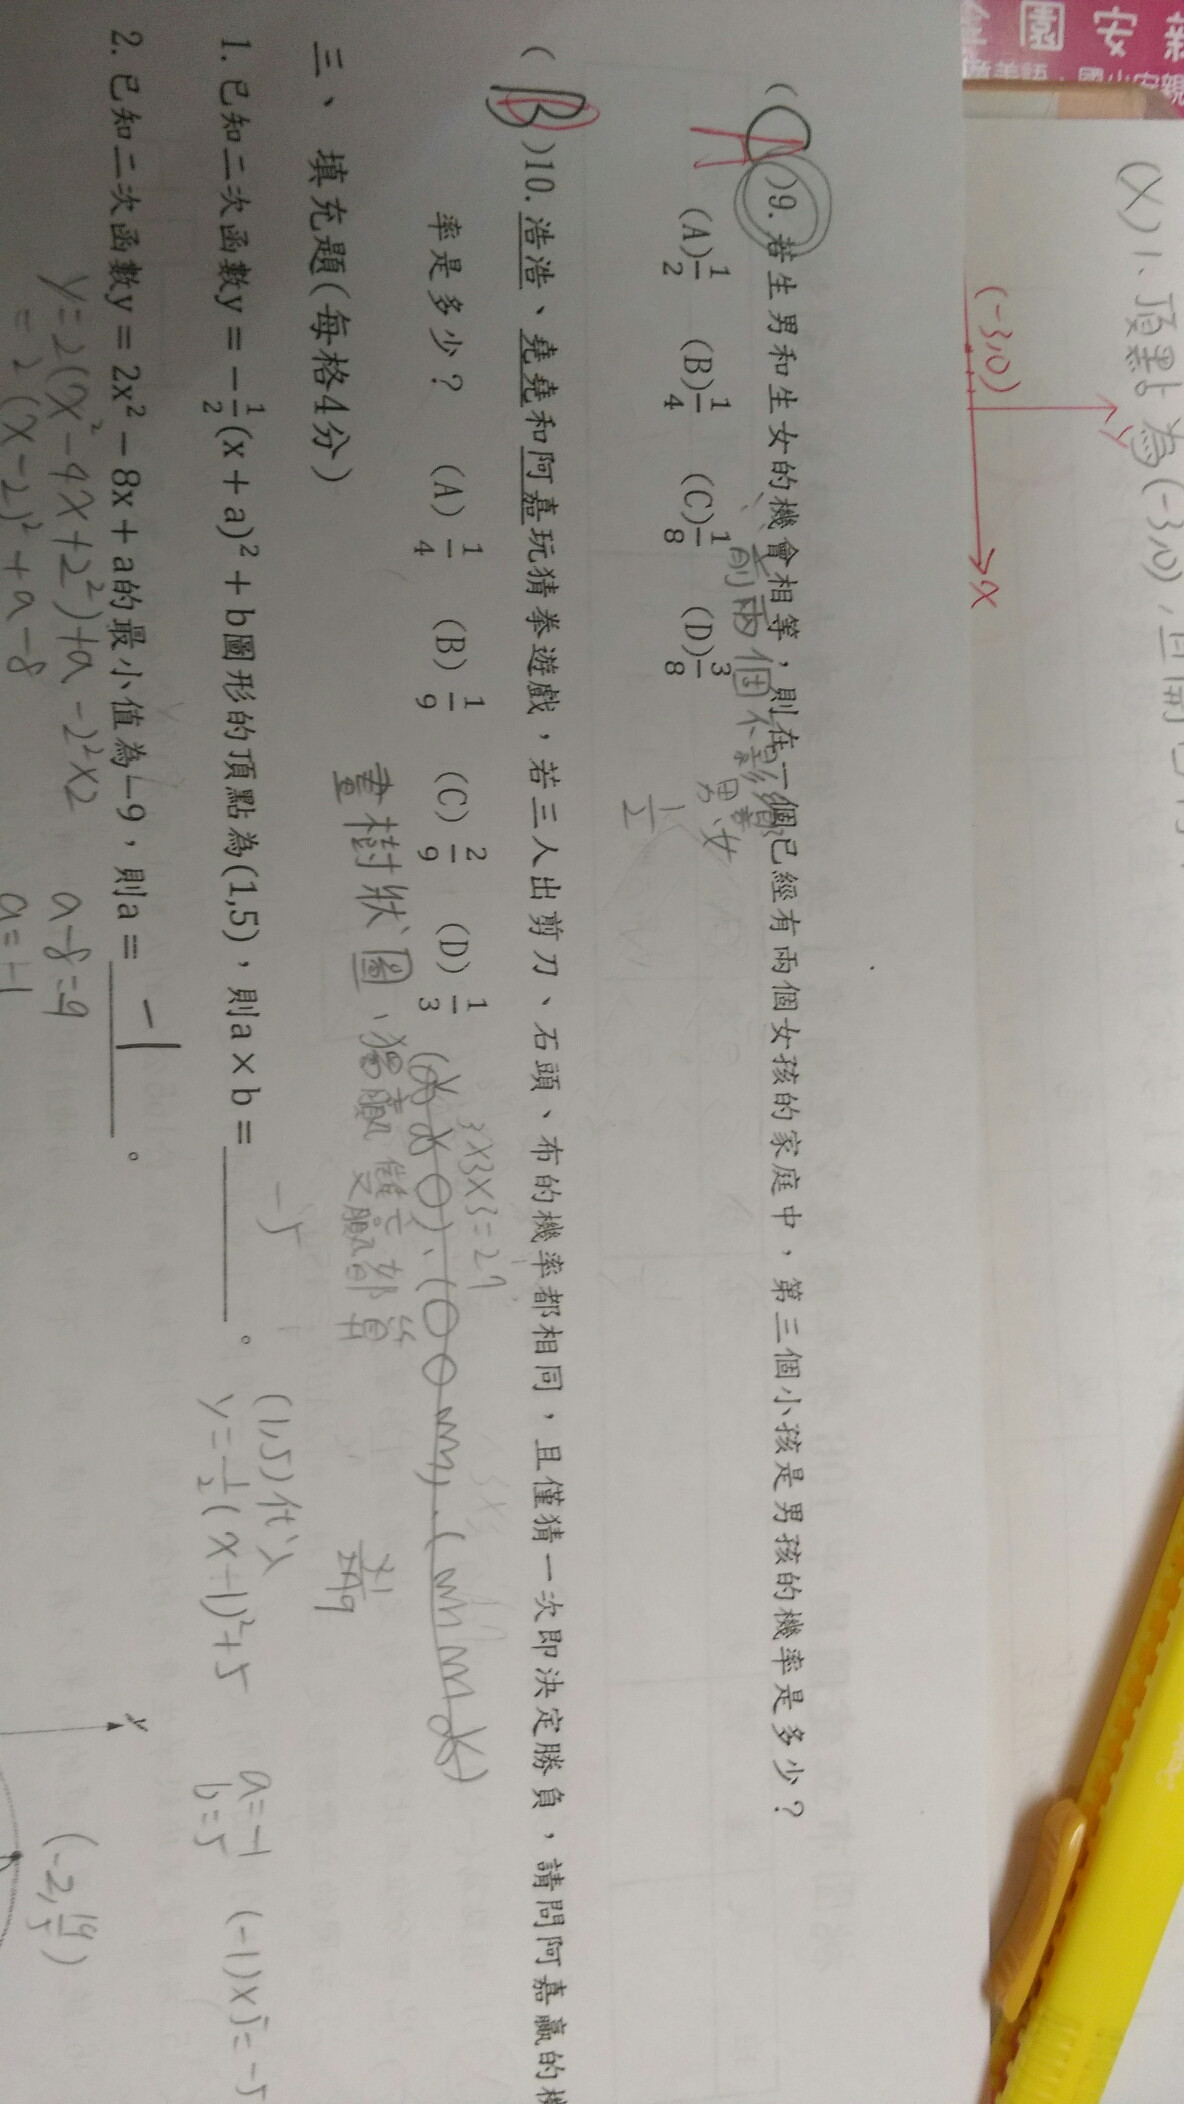 新
安
園
全
(X) 1、頂點為(-3,0)，且開
(-3,0)
y
x
(A)9. 若生男和生女的機會相等，則在一個已經有兩個女孩的家庭中，第三個小孩是男孩的機率是多少？
前兩個不影響
男、女
1/2
(A) 1/2 (B) 1/4 (C) 1/8 (D) 3/8
(B)10. 浩浩、堯堯和阿嘉玩猜拳遊戲，若三人出剪刀、石頭、布的機率都相同，且僅猜一次即決定勝負，請問阿嘉贏的機
率是多少？ (A) 1/4 (B) 1/9 (C) 2/9 (D) 1/3
3×3×3=27
畫樹狀圖、獨贏
三、填充題(每格4分)
1. 已知二次函數y = -1/2(x + a)² + b圖形的頂點為(1,5)，則a × b = ________。
-5
(1,5)代入
y = -1/2(x-1)²+5
a=-1
b=5
(-1)×5=-5
2. 已知二次函數y = 2x² - 8x + a的最小值為-9，則a = -1。
y=2(x²-4x+2²)+a-2²×2
= 2(x-2)²+a-8
a-8=-9
a=-1
y